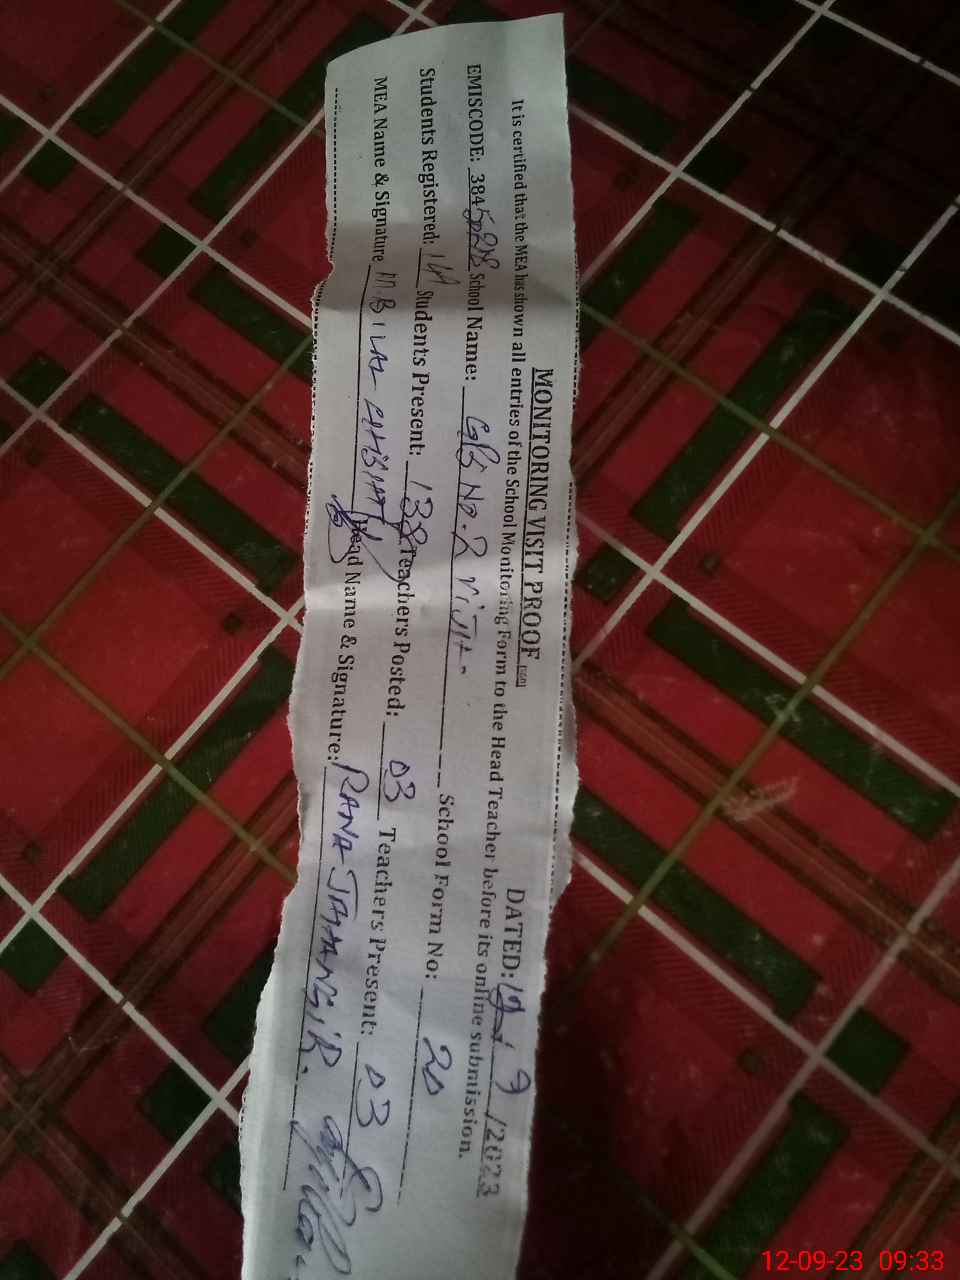 MONITORING VISIT PROOF DATED: 9 /2023
It is certified that the MEA has shown all entries of the School Monitoring Form to the Head Teacher before its online submission.
EMISCODE: 3845 School Name: No. 2 School Form No: 20
Students Registered: Students Present: 138 Teachers Posted: 03 Teachers Present: 03
MEA Name & Signature M BILAL Head Name & Signature: RANA JAHANGIR.
12-09-23 09:33